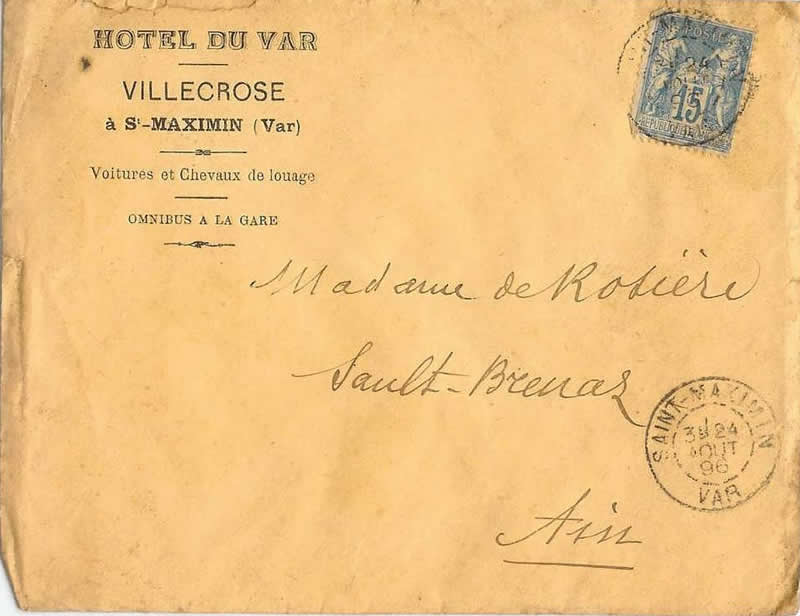 HOTEL DU VAR
VILLECROSE
à St-MAXIMIN (Var)
Voitures et Chevaux de louage
OMNIBUS A LA GARE
POSTE
15
Madame de Rosière
Sault-Brenaz
Ain
SAINT-MAXIMIN
3E 24
AOUT
96
VAR